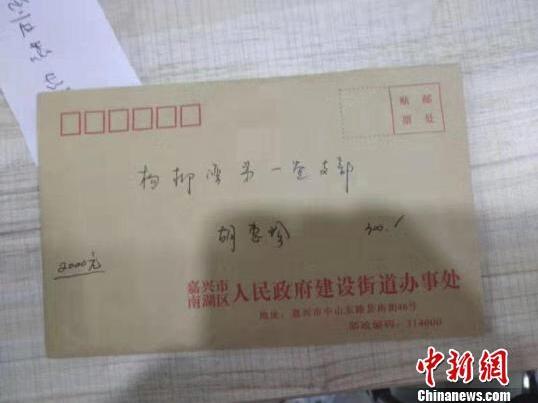 贴 邮
票 处
杨柳湾第一党支部
胡惠珍
300.1
2000元
嘉兴市
南湖区 人民政府建设街道办事处
地址：嘉兴市中山东路县南街46号
邮政编码：314000
中新网
Chinanews.com